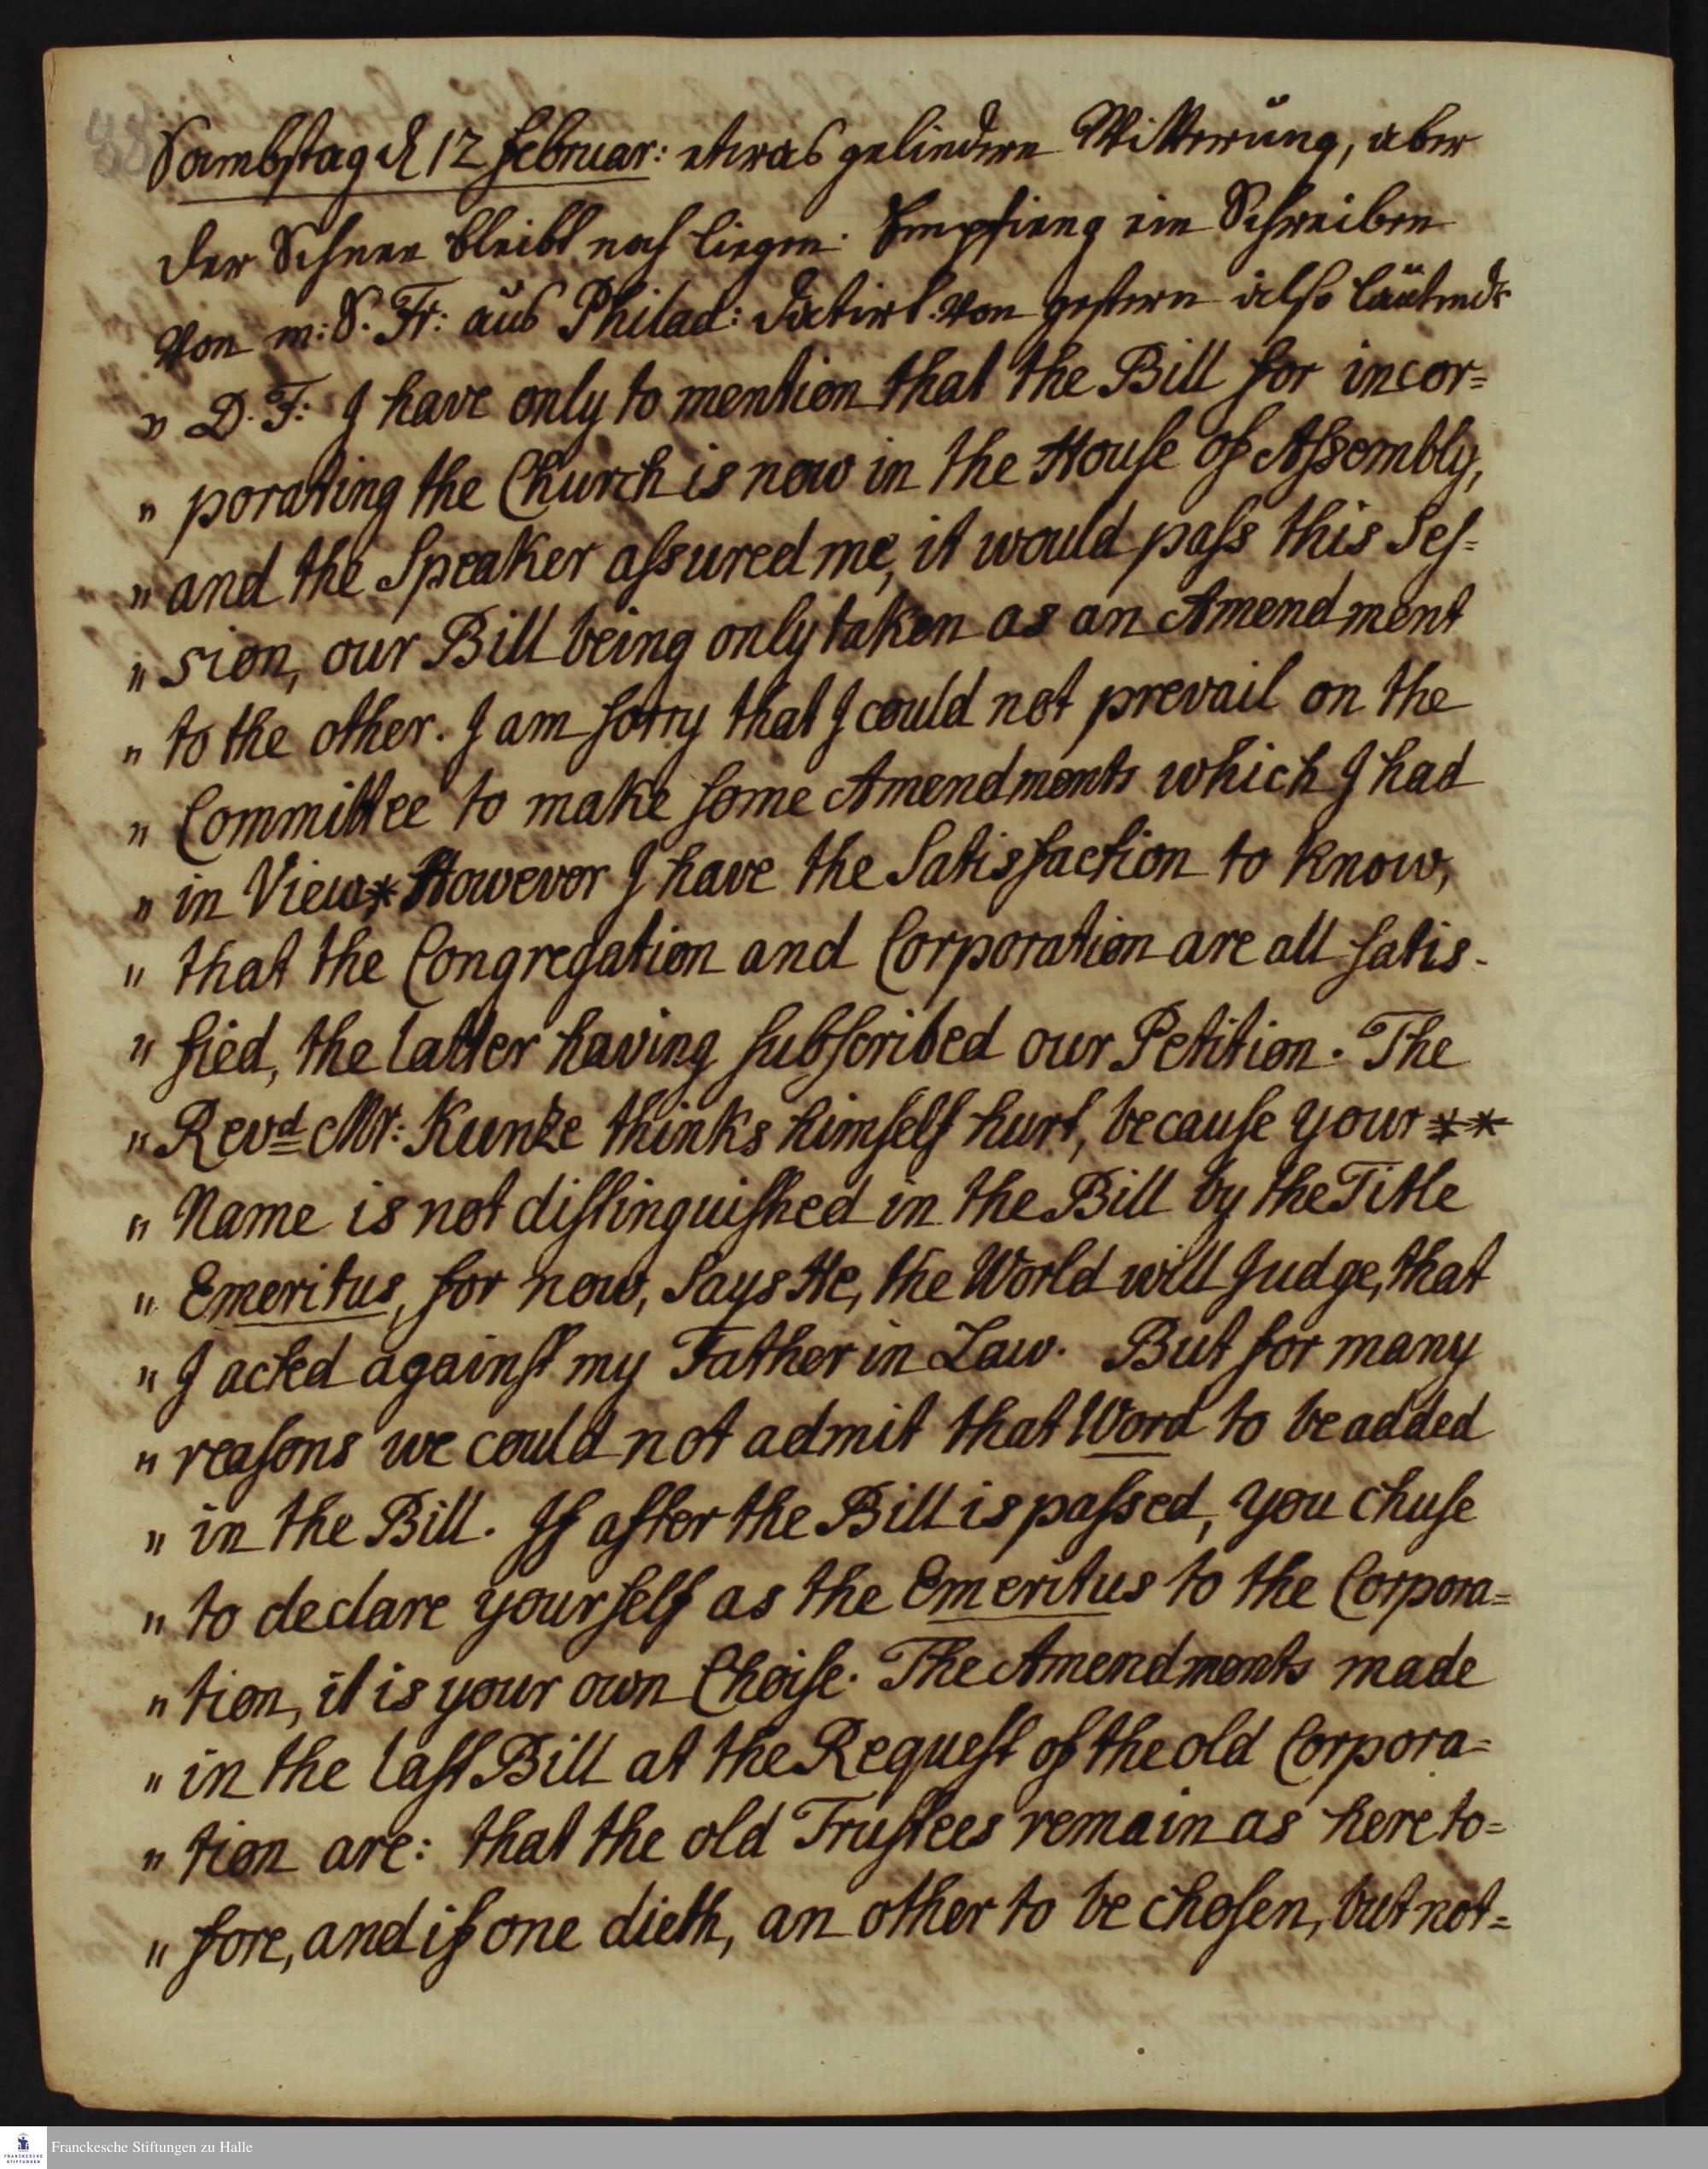 88
Sambstag d 12 Februar: etwas gelindere Witterung, aber
der Schnee bleibt noch liegen. Empfieng ein Schreiben
von m: S. Fr: aus Philad: datirt von gestern also lautend:
" D. F: I have only to mention that the Bill for incor=
" porating the Church is now in the House of Assembly,
" and the Speaker assured me, it would pass this Ses=
" sion, our Bill being only taken as an Amendment
" to the other. I am sorry that I could not prevail on the
" Committee to make some Amendments which I had
" in View* However I have the Satisfaction to know,
" that the Congregation and Corporation are all satis-
" fied, the latter having subscribed our Petition. The
" Revd Mr: Kunze thinks himself hurt, because your **
" Name is not distinguished in the Bill by the Title
" Emeritus, for now, says He, the World will Judge, that
" I acted against my Father in Law. But for many
" reasons we could not admit that Word to be added
" in the Bill. If after the Bill is passed, you chuse
" to declare yourself as the Emeritus to the Corpora=
" tion, it is your own Choise. The Amendments made
" in the last Bill at the Request of the old Corpora=
" tion are: that the old Trustees remain as hereto=
" fore, and if one dieth, an other to be chosen, but not=
Franckesche Stiftungen zu Halle
FRANCKESCHE
STIFTUNGEN